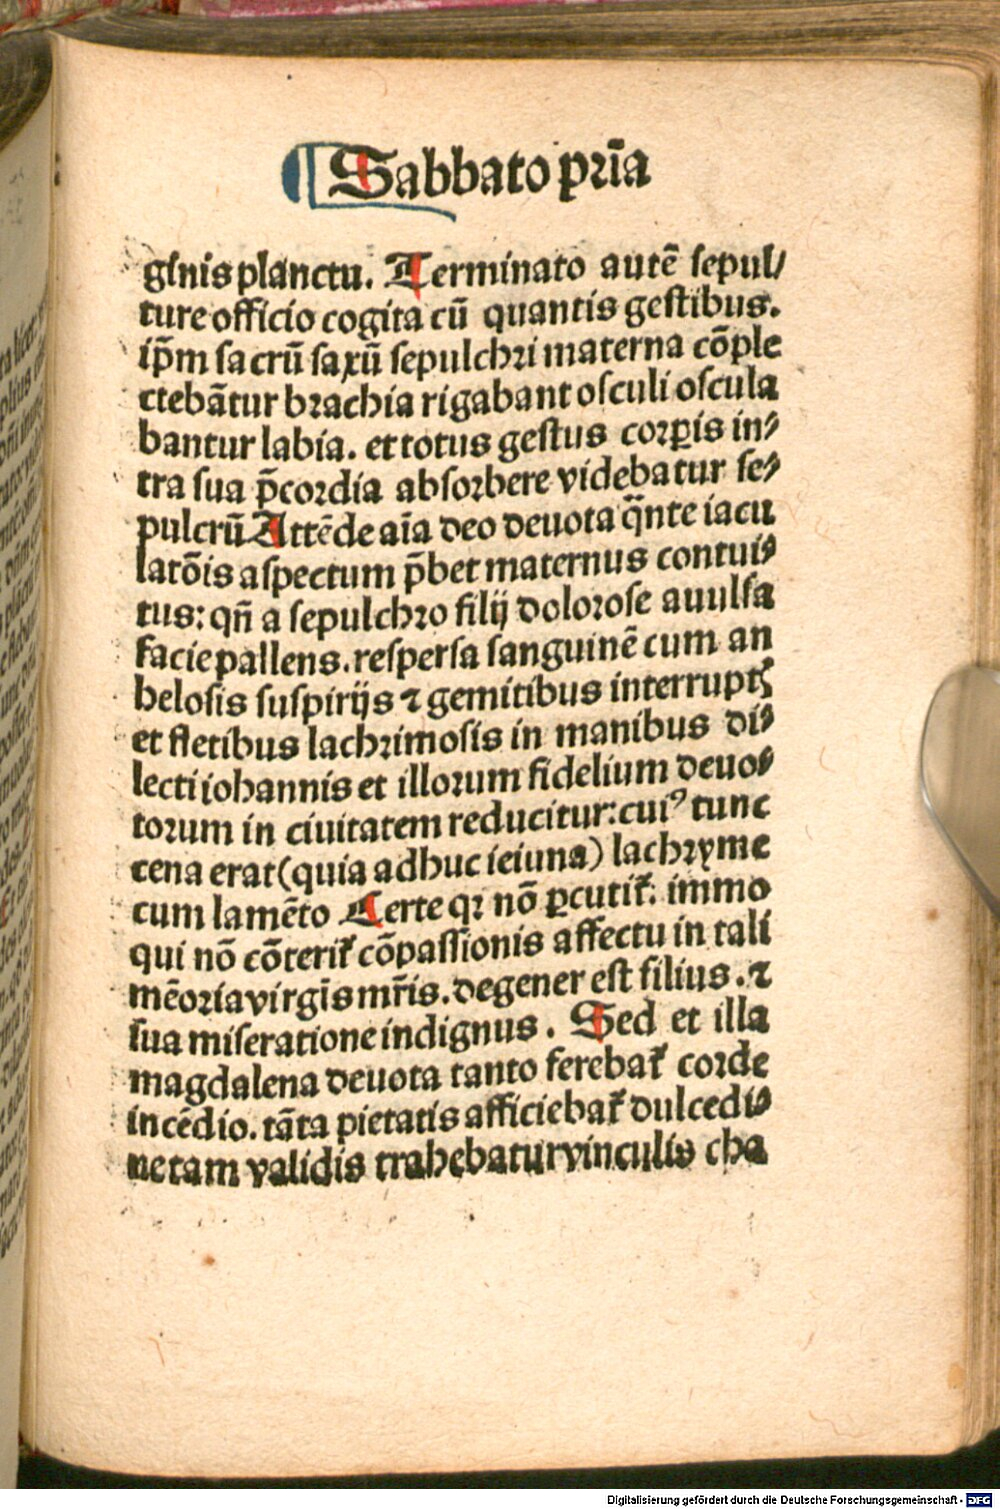 Sabbato prīa
ginis planctu. Terminato autē sepul/
ture officio cogita cū quantis gestibus.
ip̄m sacrū saxū sepulchri materna cōple
ctebātur brachia rigabant osculi oscula
bantur labia. et totus gestus corꝑis in⸗
tra sua p̄cordia absorbere videbatur se⸗
pulcrū Attēde aīa deo deuota q̄nte iacu
latōis aspectum p̄bet maternus contui⸗
tus: qn̄ a sepulchro filij dolorose auulsa
facie pallens. respersa sanguinē cum an
helosis suspirijs ⁊ gemitibus interruptꝭ
et fletibus lachrimosis in manibus di⸗
lecti iohannis et illorum fidelium deuo⸗
torum in ciuitatem reducitur: cuiꝰ tunc
cena erat (quia adhuc ieiuna) lachryme
cum lamēto Certe qꝛ nō ꝑcutit᷑. immo
qui nō cōterit᷑ cōpassionis affectu in tali
mēoria virgīs mr̄is. degener est filius. ⁊
sua miseratione indignus. Sed et illa
magdalena deuota tanto ferebat᷑ corde
incēdio. tāta pietatis afficiebat᷑ dulcedi⸗
ne tam validis trahebatur vinculis cha
Digitalisierung gefördert durch die Deutsche Forschungsgemeinschaft - DFG